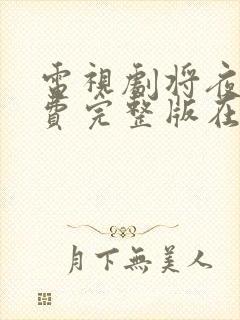 電視劇將夜
費完整版在
月下無美人